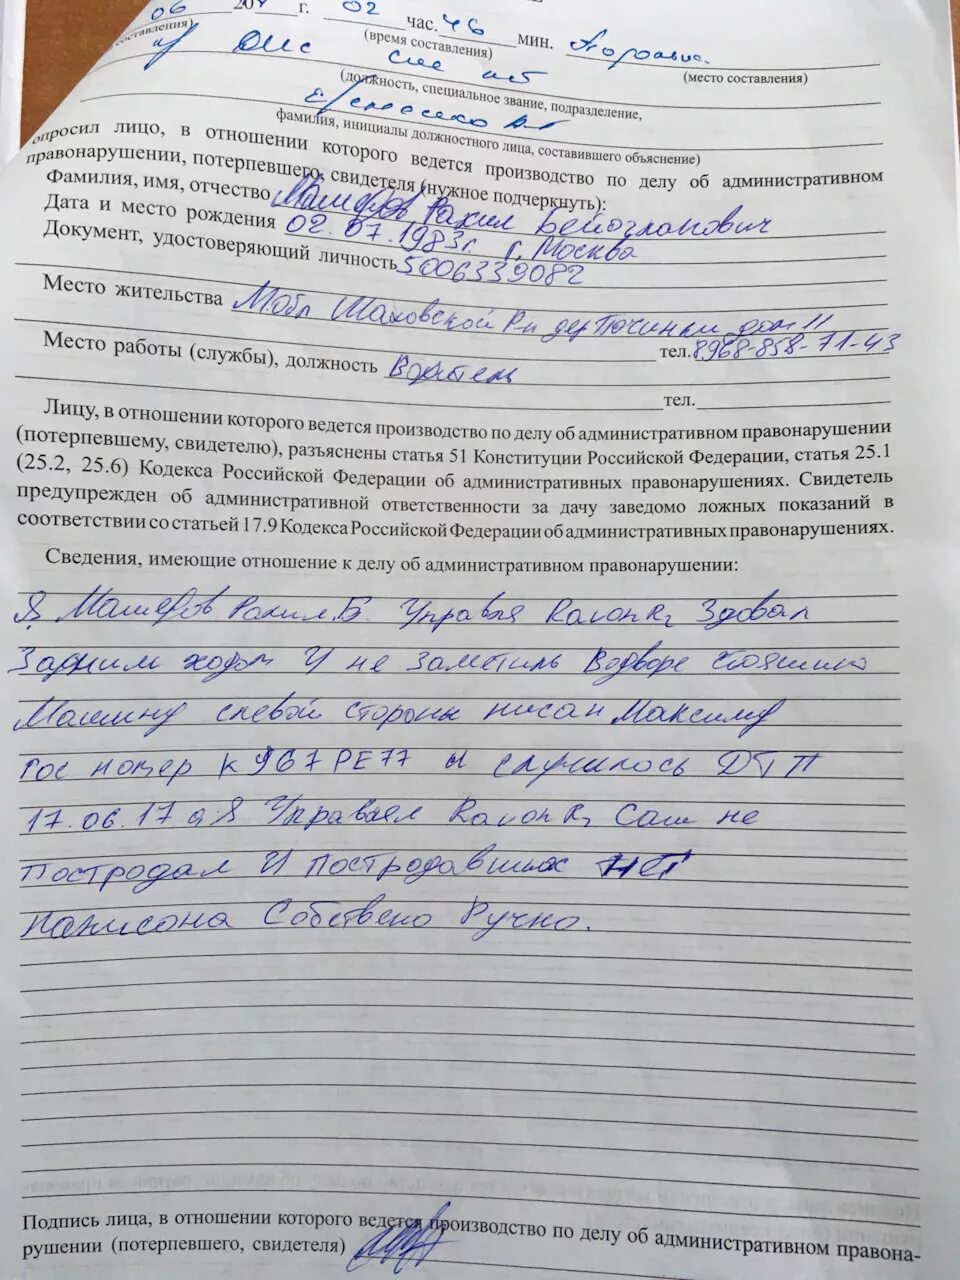 06 20 г. 02 час. 46 мин.
составления) (время составления) (место составления)
(должность, специальное звание, подразделение,
фамилия, инициалы должностного лица, составившего объяснение)
опросил лицо, в отношении которого ведется производство по делу об административном
правонарушении, потерпевшего, свидетеля (нужное подчеркнуть):
Фамилия, имя, отчество Рахил
Дата и место рождения 02.07.1983г г. Москва
Документ, удостоверяющий личность 5006339082
Место жительства М.обл Шаховской Р-н дер Починки дом 11
тел. 8968-858-71-43
Место работы (службы), должность Водитель
тел.
Лицу, в отношении которого ведется производство по делу об административном правонарушении
(потерпевшему, свидетелю), разъяснены статья 51 Конституции Российской Федерации, статья 25.1
(25.2, 25.6) Кодекса Российской Федерации об административных правонарушениях. Свидетель
предупрежден об административной ответственности за дачу заведомо ложных показаний в
соответствии со статьей 17.9 Кодекса Российской Федерации об административных правонарушениях.
Сведения, имеющие отношение к делу об административном правонарушении:
Я Рахил Б. Управля Здовал
Задним ходом И не заметиль Водворе
Машину слевой стороны нисан Максиму
Гос номер К 967 РЕ77 и случилось ДТП
17.06.17 а я Управлял Сам не
Пострадал И Постродавших нет
Написона Собствено Ручно.
Подпись лица, в отношении которого ведется производство по делу об административном правона-
рушении (потерпевшего, свидетеля)